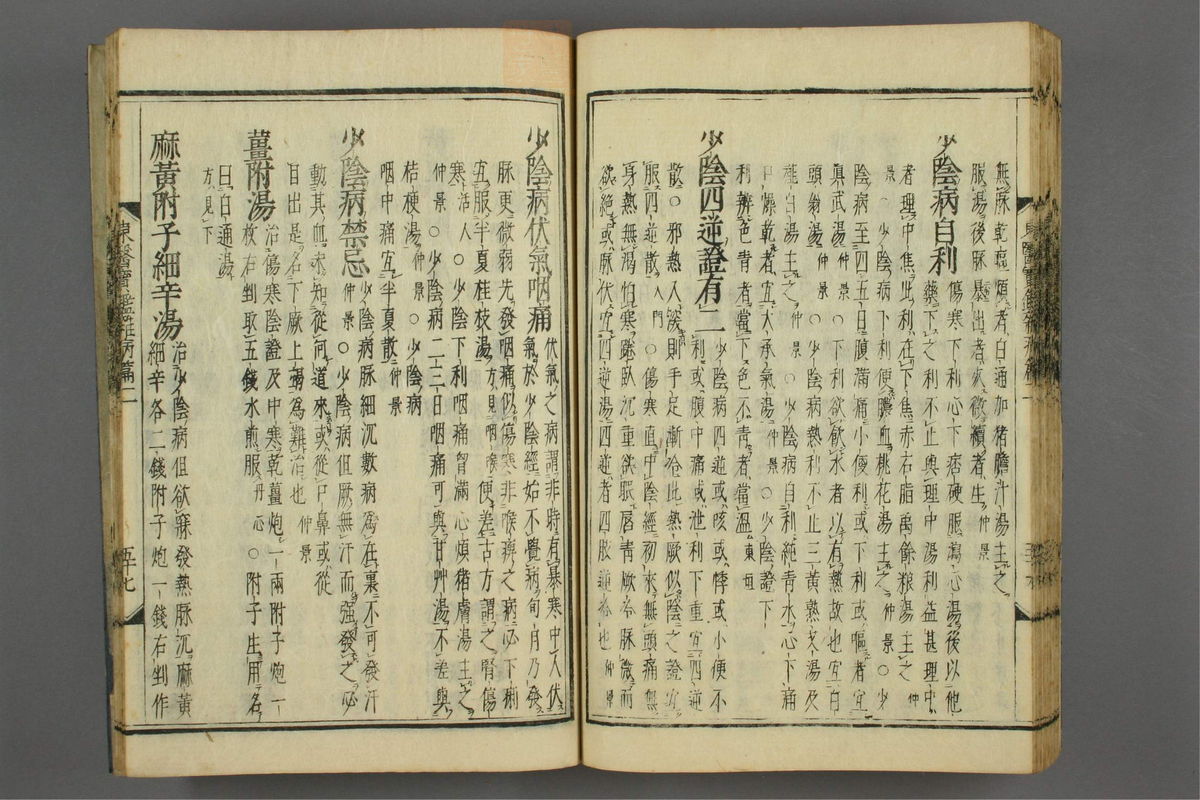 無脉乾嘔煩者白通加猪膽汁湯主之
服湯後脉暴出者死微續者生 仲景
少陰病自利 傷寒下利心下痞硬服瀉心湯後以他
藥下之利不止與理中湯利益甚理中
者理中焦此利在下焦赤石脂禹餘粮湯主之 仲
景 ○少陰病下利便膿血桃花湯主之 仲景 ○少
陰病至四五日腹滿痛小便利或下利或嘔者宜
眞武湯 仲景 ○下利欲飮水者以有熱故也宜白
頭翁湯 仲景 ○少陰病熱利不止三黃熟艾湯及
薤白湯主之 仲景 ○少陰病自利純青水心下痛
口燥乾者宜大承氣湯 仲景 ○少陰證下
利辨色青者當下色不青者當溫 東垣
少陰四逆證有二 少陰病四逆或咳或悸或小便不
利或腹中痛或泄利下重宜四逆
散○邪熱入深則手足漸冷此熱厥似陰之證宜
服四逆散 入門 ○傷寒直中陰經初來無頭痛無
身熱無渴怕寒踡臥沉重欲眠唇青厥冷脉微而
欲絶或脉伏宜四逆湯四逆者四肢逆冷也 仲景
少陰病伏氣咽痛 伏氣之病謂非時有暴寒中人伏
氣於少陰經始不覺病旬月乃發
脉更微弱先發咽痛似傷寒非喉痺之病必下利
宜服半夏桂枝湯 方見咽喉 便差古方謂之腎傷
寒 活人 ○少陰下利咽痛胷滿心煩猪膚湯主之
仲景 ○少陰病二三日咽痛可與甘艸湯不差與
桔梗湯 仲景 ○少陰病
咽中痛宜半夏散 仲景
少陰病禁忌 少陰病脉細沉數病爲在裏不可發汗
仲景 ○少陰病但厥無汗而强發之必
動其血未知從何道來或從口鼻或從
目出是名下厥上竭爲難治也 仲景
薑附湯 治傷寒陰證及中寒乾薑炮一兩附子炮一
枚右剉取五錢水煎服 丹心 ○附子生用名
曰白通湯
方見下
麻黃附子細辛湯 治少陰病但欲寐發熱脉沉麻黃
細辛各二錢附子炮一錢右剉作
東醫寶鑑雜病篇二
五十七